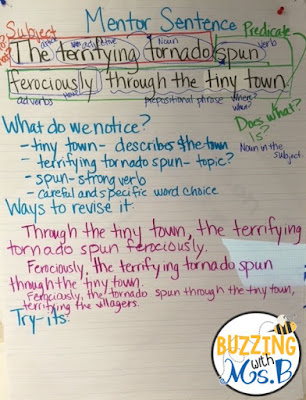 Mentor Sentence
Subject
Predicate
article
adjective
Noun
verb
The terrifying tornado spun
ferociously through the tiny town
adverbs
how
prepositional phrase
Where?
when?
Does what?
Is?
Noun in the
subject
What do we notice?
- tiny town - describes the town
- terrifying tornado spun - topic?
- spun - strong verb
- careful and specific word choice
Ways to revise it:
Through the tiny town, the terrifying
tornado spun ferociously.
Ferociously, the terrifying tornado spun
through the tiny town.
Ferociously, the tornado spun through the tiny town,
terrifying the villagers.
Try-its:
BUZZING
with
Ms. B